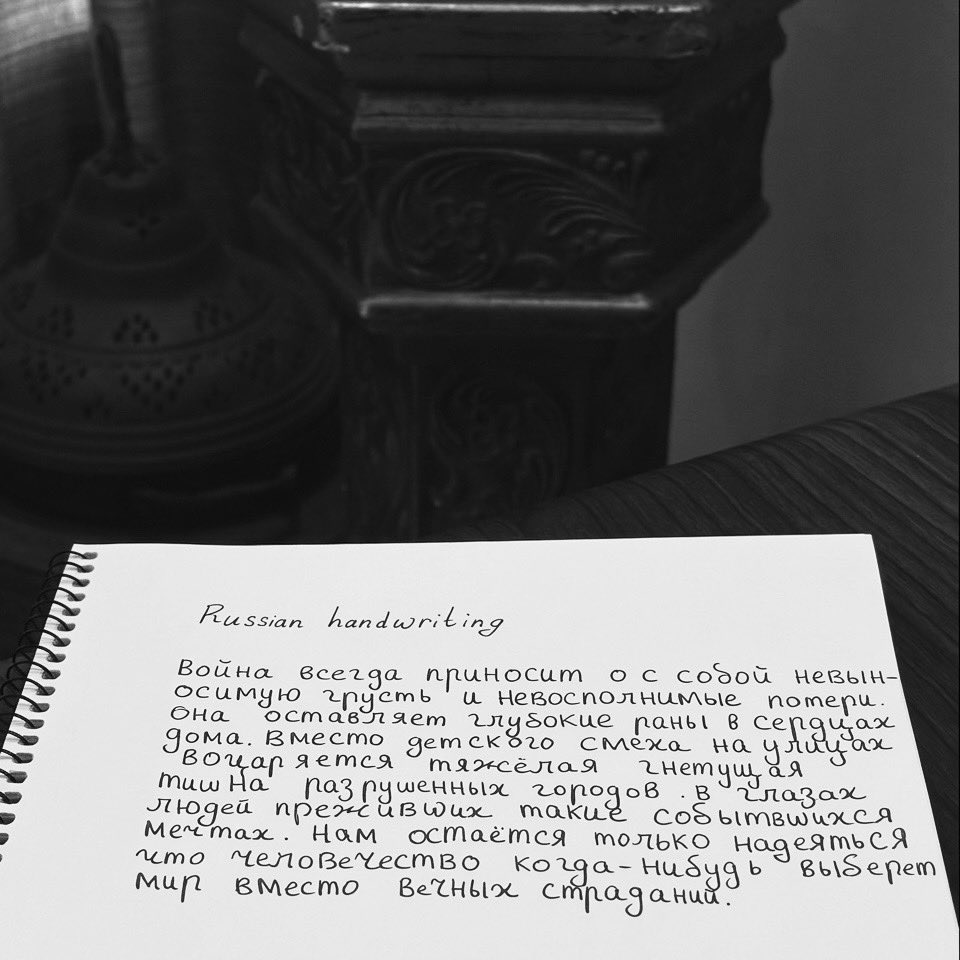 Russian handwriting
Война всегда приносит о с собой невын-
осимую грусть и невосполнимые потери.
Она оставляет глубокие раны в сердцах
дома. Вместо детского смеха на улицах
воцаряется тяжёлая гнетущая
тишна разрушенных городов. В глазах
людей преживших такие событвшихся
мечтах. Нам остаётся только надеяться
что человечество когда-нибудь выберет
мир вместо вечных страданий.